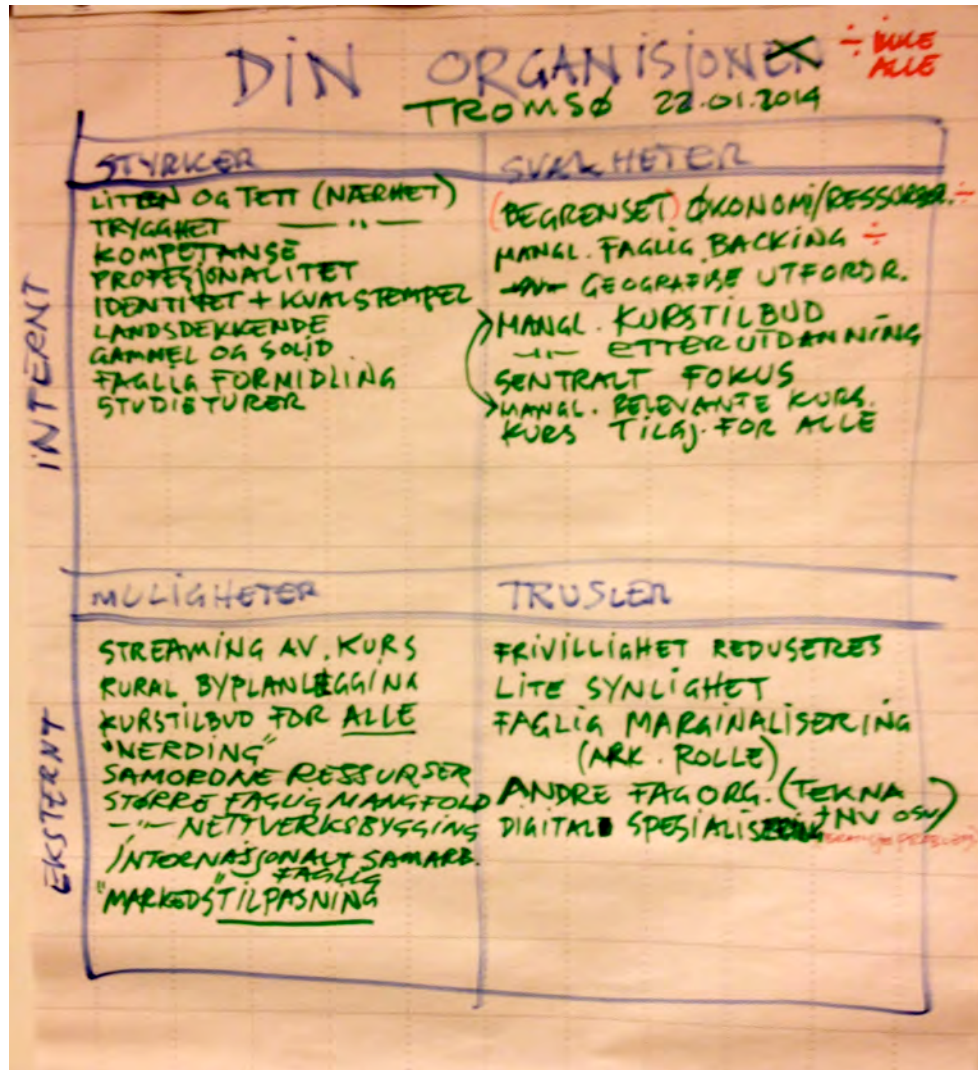 DIN ORGANISJONEN
÷ IKKE
ALLE
TROMSØ 22.01.2014
INTERNT
STYRKER
LITEN OG TETT (NÆRHET)
TRYGGHET —— " ——
KOMPETANSE
PROFESJONALITET
IDENTITET + KVALSTEMPEL
LANDSDEKKENDE
GAMMEL OG SOLID
FAGLIG FORMIDLING
STUDIETURER
SVAKHETER
(BEGRENSET) ØKONOMI/RESSURSER. ÷
MANGL. FAGLIG BACKING ÷
GEOGRAFISKE UTFORDR.
MANGL. KURSTILBUD
—"— ETTERUTDANNING
SENTRALT FOKUS
MANGL. RELEVANTE KURS.
KURS TILGJ. FOR ALLE
EKSTERNT
MULIGHETER
STREAMING AV KURS
RURAL BYPLANLEGGING
KURSTILBUD FOR ALLE
"NERDING"
SAMORDNE RESSURSER
STØRRE FAGLIG MANGFOLD
—"— NETTVERKSBYGGING
INTERNASJONALT SAMARB.
FAGLIG
"MARKEDSTILPASNING
TRUSLER
FRIVILLIGHET REDUSERES
LITE SYNLIGHET
FAGLIG MARGINALISERING
(ARK. ROLLE)
ANDRE FAGORG. (TEKNA
+ NV OSV)
DIGITAL SPESIALISERING